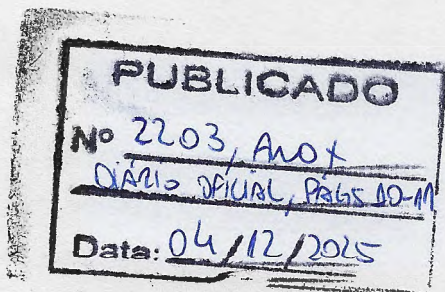 PUBLICADO
Nº 2203, ANO X
DIÁRIO OFICIAL, PÁGS 10-11
Data: 04/12/2025